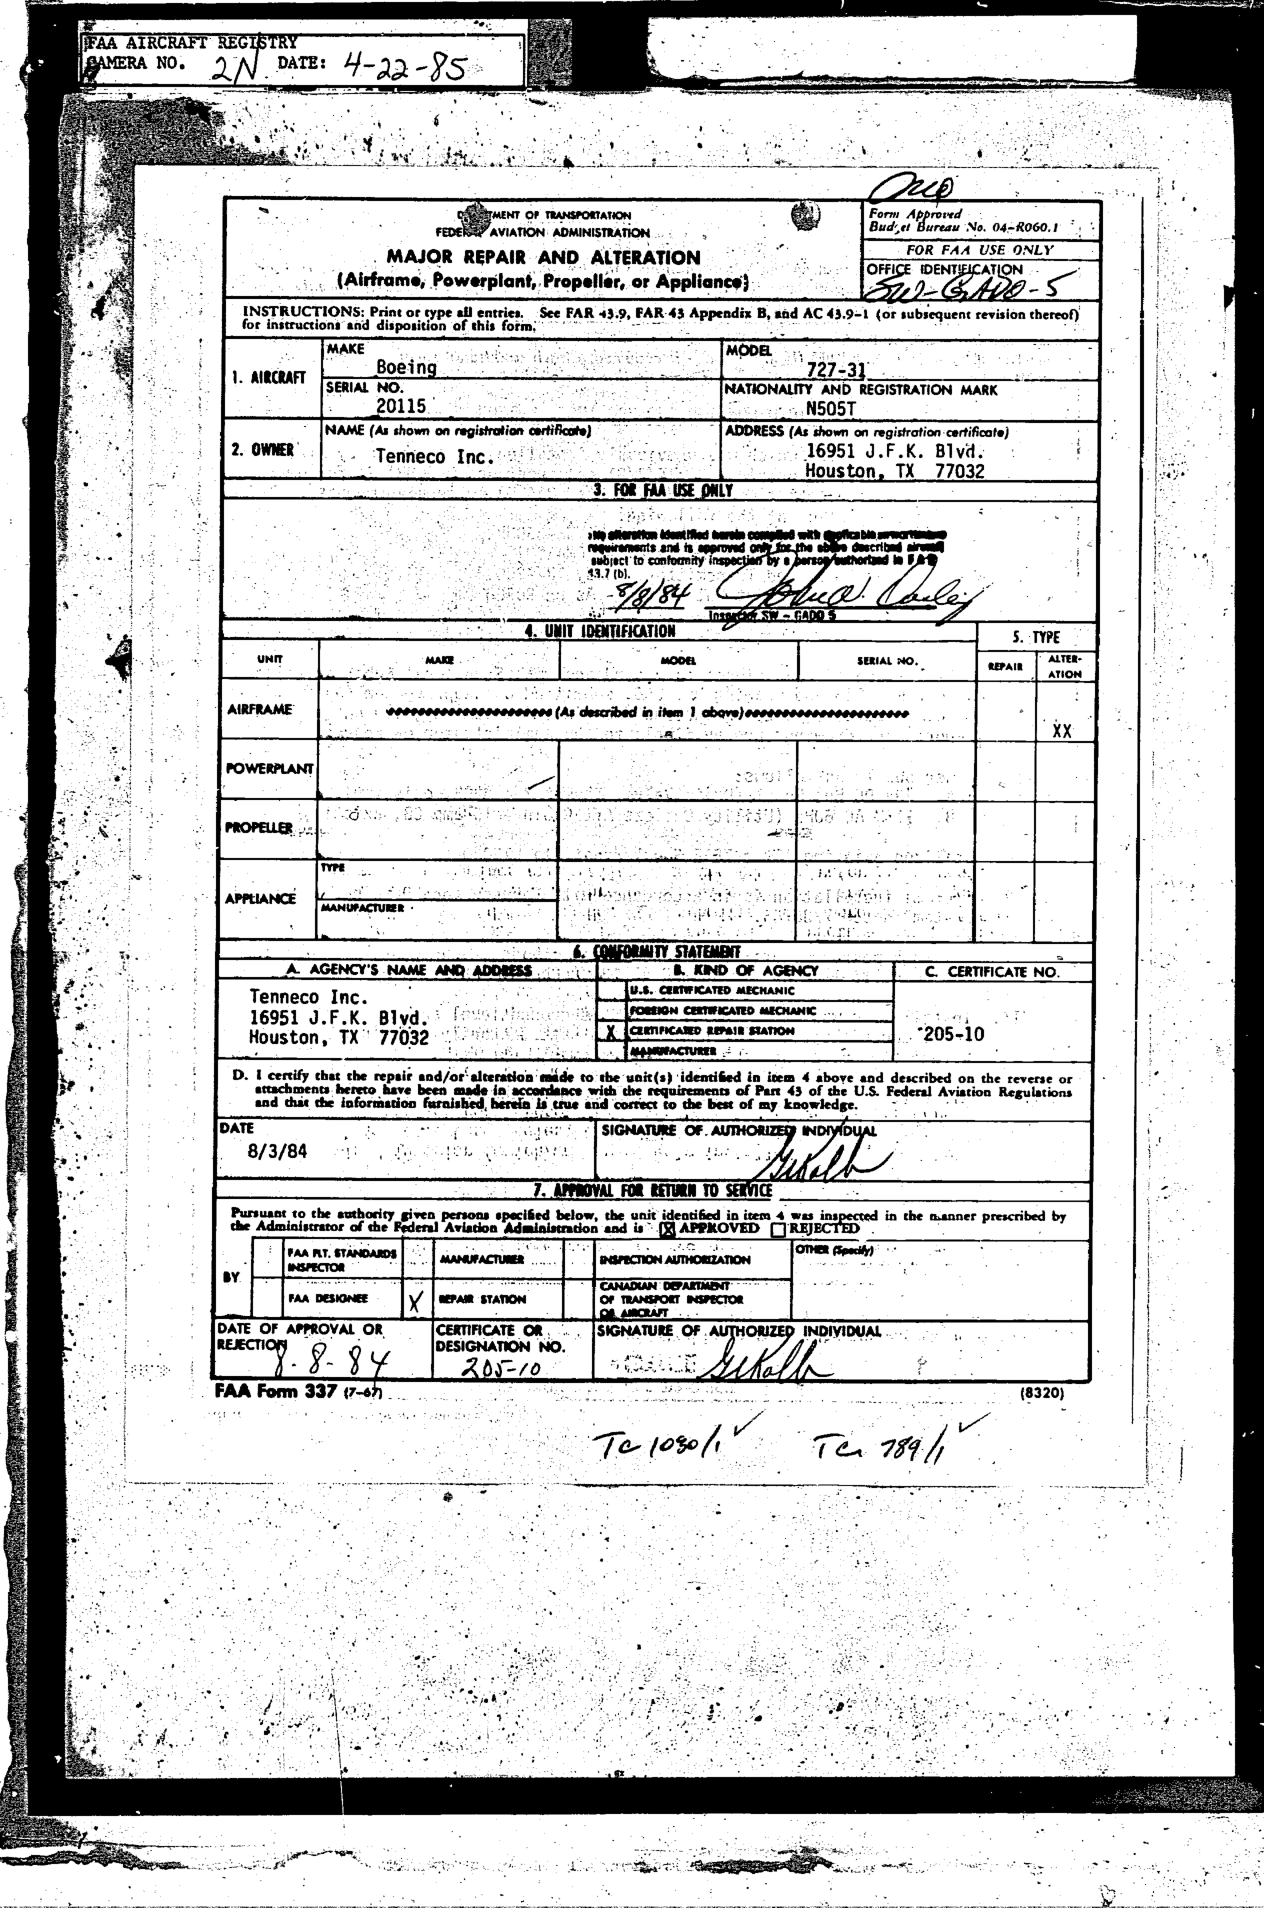 FAA AIRCRAFT REGISTRY
CAMERA NO. 2N DATE: 4-22-85
DEPARTMENT OF TRANSPORTATION
FEDERAL AVIATION ADMINISTRATION
MAJOR REPAIR AND ALTERATION
(Airframe, Powerplant, Propeller, or Appliance)
Form Approved
Budget Bureau No. 04-R060.1
FOR FAA USE ONLY
OFFICE IDENTIFICATION
SW-GADO-5
INSTRUCTIONS: Print or type all entries. See FAR 43.9, FAR 43 Appendix B, and AC 43.9-1 (or subsequent revision thereof)
for instructions and disposition of this form.
1. AIRCRAFT
MAKE
Boeing
MODEL
727-31
SERIAL NO.
20115
NATIONALITY AND REGISTRATION MARK
N505T
2. OWNER
NAME (As shown on registration certificate)
Tenneco Inc.
ADDRESS (As shown on registration certificate)
16951 J.F.K. Blvd.
Houston, TX 77032
3. FOR FAA USE ONLY
alteration identified herein complied with applicable airworthiness
requirements and is approved only for the above described aircraft
subject to conformity inspection by a person authorized in FAR
43.7 (b).
8/8/84
Inspector SW - GADO 5
4. UNIT IDENTIFICATION
5. TYPE
UNIT MAKE MODEL SERIAL NO. REPAIR ALTER-
ATION
AIRFRAME (As described in item 1 above) XX
POWERPLANT
PROPELLER
APPLIANCE
TYPE
MANUFACTURER
6. CONFORMITY STATEMENT
A. AGENCY'S NAME AND ADDRESS B. KIND OF AGENCY C. CERTIFICATE NO.
Tenneco Inc.
16951 J.F.K. Blvd.
Houston, TX 77032
U.S. CERTIFICATED MECHANIC
FOREIGN CERTIFICATED MECHANIC
X CERTIFICATED REPAIR STATION
MANUFACTURER
205-10
D. I certify that the repair and/or alteration made to the unit(s) identified in item 4 above and described on the reverse or
attachments hereto have been made in accordance with the requirements of Part 43 of the U.S. Federal Aviation Regulations
and that the information furnished herein is true and correct to the best of my knowledge.
DATE
8/3/84
SIGNATURE OF AUTHORIZED INDIVIDUAL
7. APPROVAL FOR RETURN TO SERVICE
Pursuant to the authority given persons specified below, the unit identified in item 4 was inspected in the manner prescribed by
the Administrator of the Federal Aviation Administration and is X APPROVED REJECTED
BY
FAA FLT. STANDARDS
INSPECTOR
MANUFACTURER
INSPECTION AUTHORIZATION
OTHER (Specify)
FAA DESIGNEE
X REPAIR STATION
CANADIAN DEPARTMENT
OF TRANSPORT INSPECTOR
OF AIRCRAFT
DATE OF APPROVAL OR
REJECTION
8-8-84
CERTIFICATE OR
DESIGNATION NO.
205-10
SIGNATURE OF AUTHORIZED INDIVIDUAL
FAA Form 337 (7-67)
(8320)